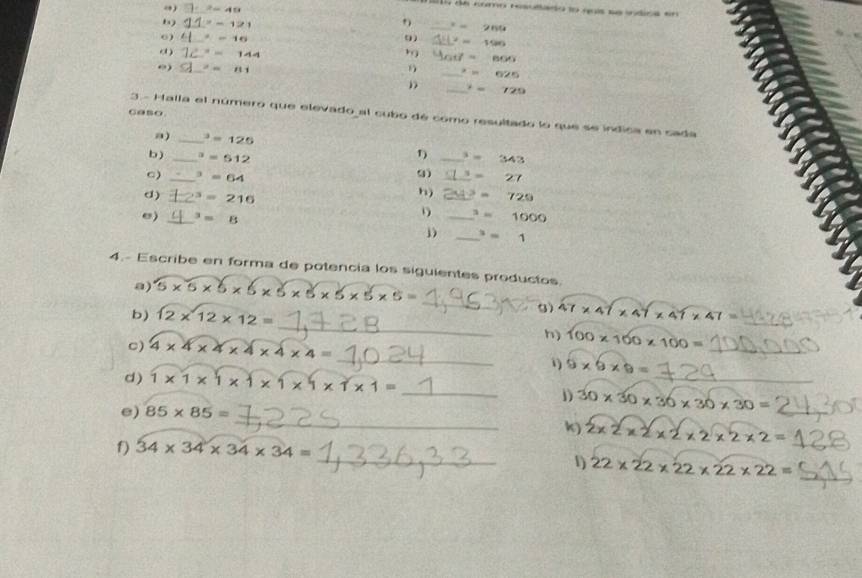 como resultado lo que se indica en
a) 7² = 49
b) 11² = 121
c) 4_² = 16
d) 12² = 144
e) 9_² = 81
f) ___² = 289
g) 14² = 196
h) 400² = 800
i) ___² = 625
j) ___² = 729
3.- Halla el número que elevado al cubo dé como resultado lo que se indica en cada
caso.
a) ___³ = 125
b) ___³ = 512
c) ___³ = 64
d) ³ = 216
e) 4³ = 8
f) ___³ = 343
g) ³ = 27
h) 243³ = 729
i) ___³ = 1000
j) ___³ = 1
4.- Escribe en forma de potencia los siguientes productos.
a) 5 × 5 × 5 × 5 × 5 × 5 × 5 × 5 × 5 = 1,963,
b) 12 × 12 × 12 = 1,728
c) 4 × 4 × 4 × 4 × 4 × 4 = 1,024
d) 1 × 1 × 1 × 1 × 1 × 1 × 1 × 1 = 1
e) 85 × 85 = 7,225
f) 34 × 34 × 34 × 34 = 1,336,33
g) 47 × 47 × 47 × 47 × 47 =
h) 100 × 100 × 100 = 100,000
i) 9 × 9 × 9 = 729
j) 30 × 30 × 30 × 30 × 30 = 24,300
k) 2 × 2 × 2 × 2 × 2 × 2 × 2 = 128
l) 22 × 22 × 22 × 22 × 22 = 5,15